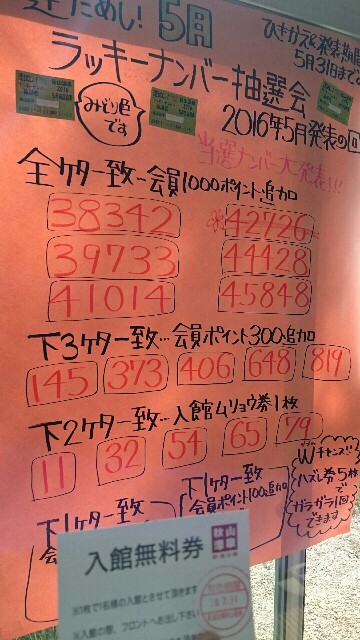 運だめし! 5月
ひきかえ&発表期間
5月31日まで
ラッキーナンバー抽選会
みどり色
です
2016年5月発表の回
当選ナンバー大発表!!!
全ケタ一致…会員1000ポイント追加
38342 42726
39733 44428
41014 45848
下3ケタ一致…会員ポイント300追加
145 373 406 648 819
下2ケタ一致…入館ムリョウ券1枚
11 32 54 65 79
Wチャンス!!
ハズレ券5枚で
ガラガラ1回
できます
下1ケタ一致
下1ケタ一致
会員ポイント100追加
入館無料券
※1枚で1名様の入館とさせて頂きます
※入館の際、フロントへお出し下さい